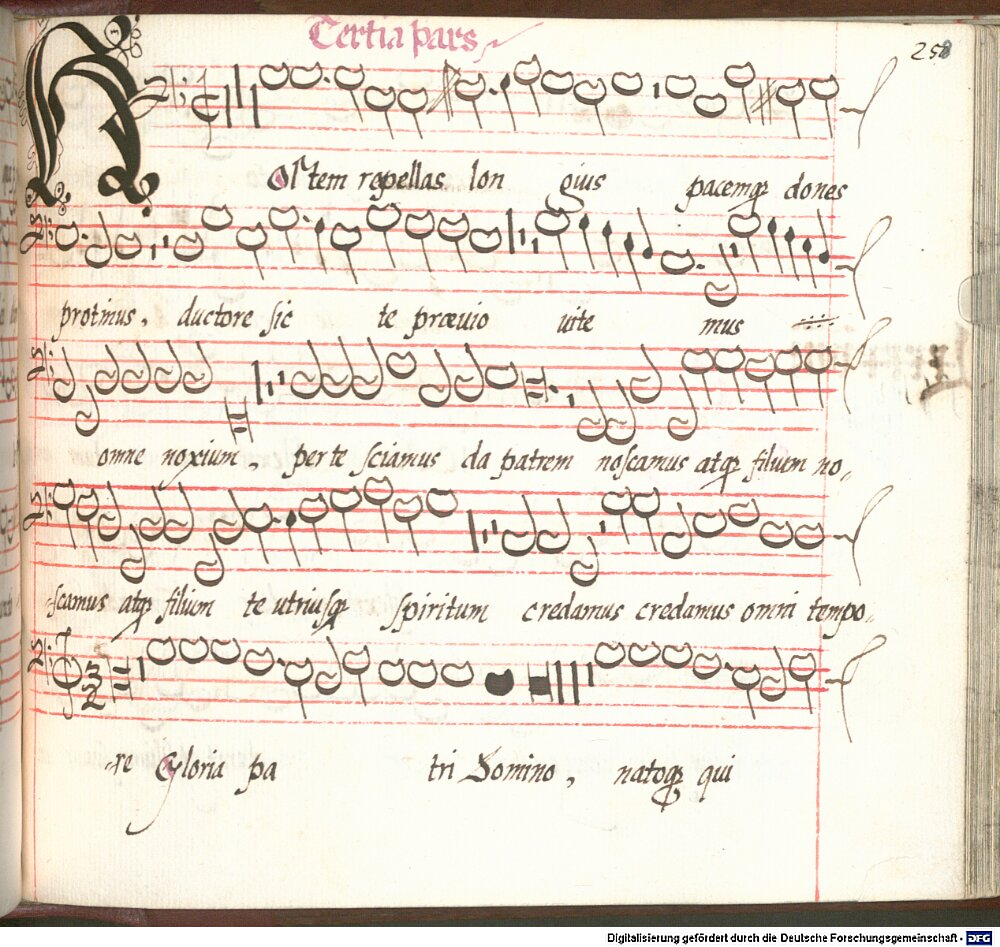 Tertia pars
258
HOstem repellas lon gius pacemq; dones
protinus, ductore sic te prævio vite mus
omne noxium, per te sciamus da patrem noscamus atq; filium no-
-scamus atq; filium te utriusq; spiritum credamus credamus omni tempo-
3
2
-re Gloria pa tri Domino, natoq; qui
Digitalisierung gefördert durch die Deutsche Forschungsgemeinschaft - DFG